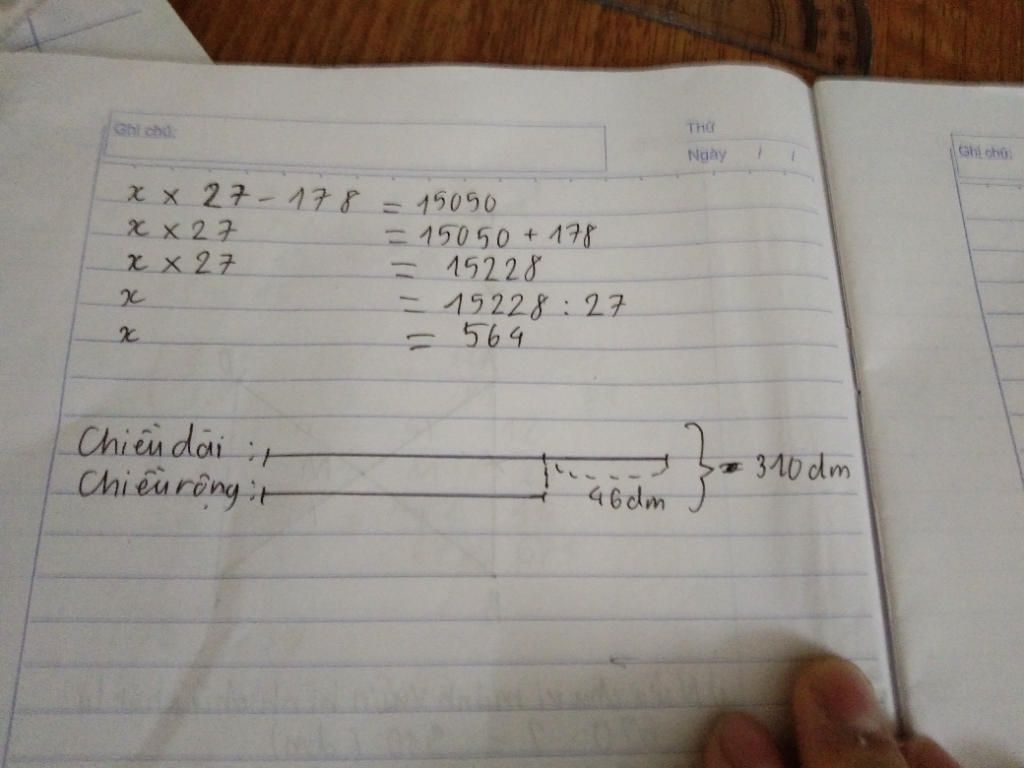 Ghi chú:
Thứ
Ngày / /
Ghi chú:
x × 27 - 178 = 15050
x × 27 = 15050 + 178
x × 27 = 15228
x = 15228 : 27
x = 564
Chiều dài :
Chiều rộng :
46dm
310dm